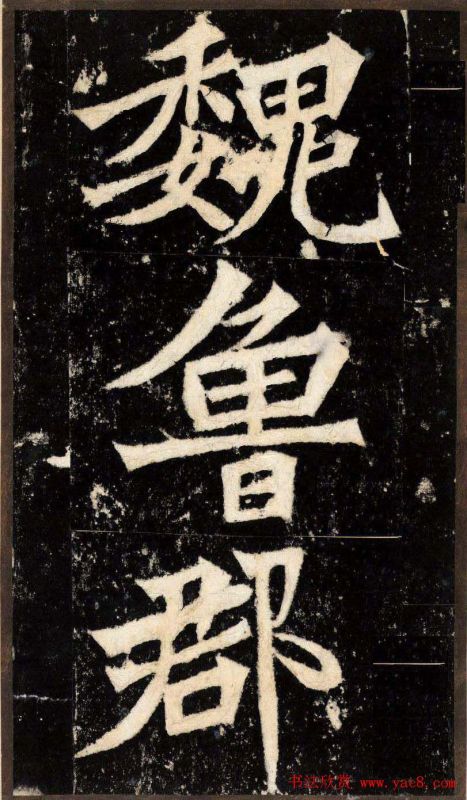 魏魯郡
书法欣赏 www.yac8.com